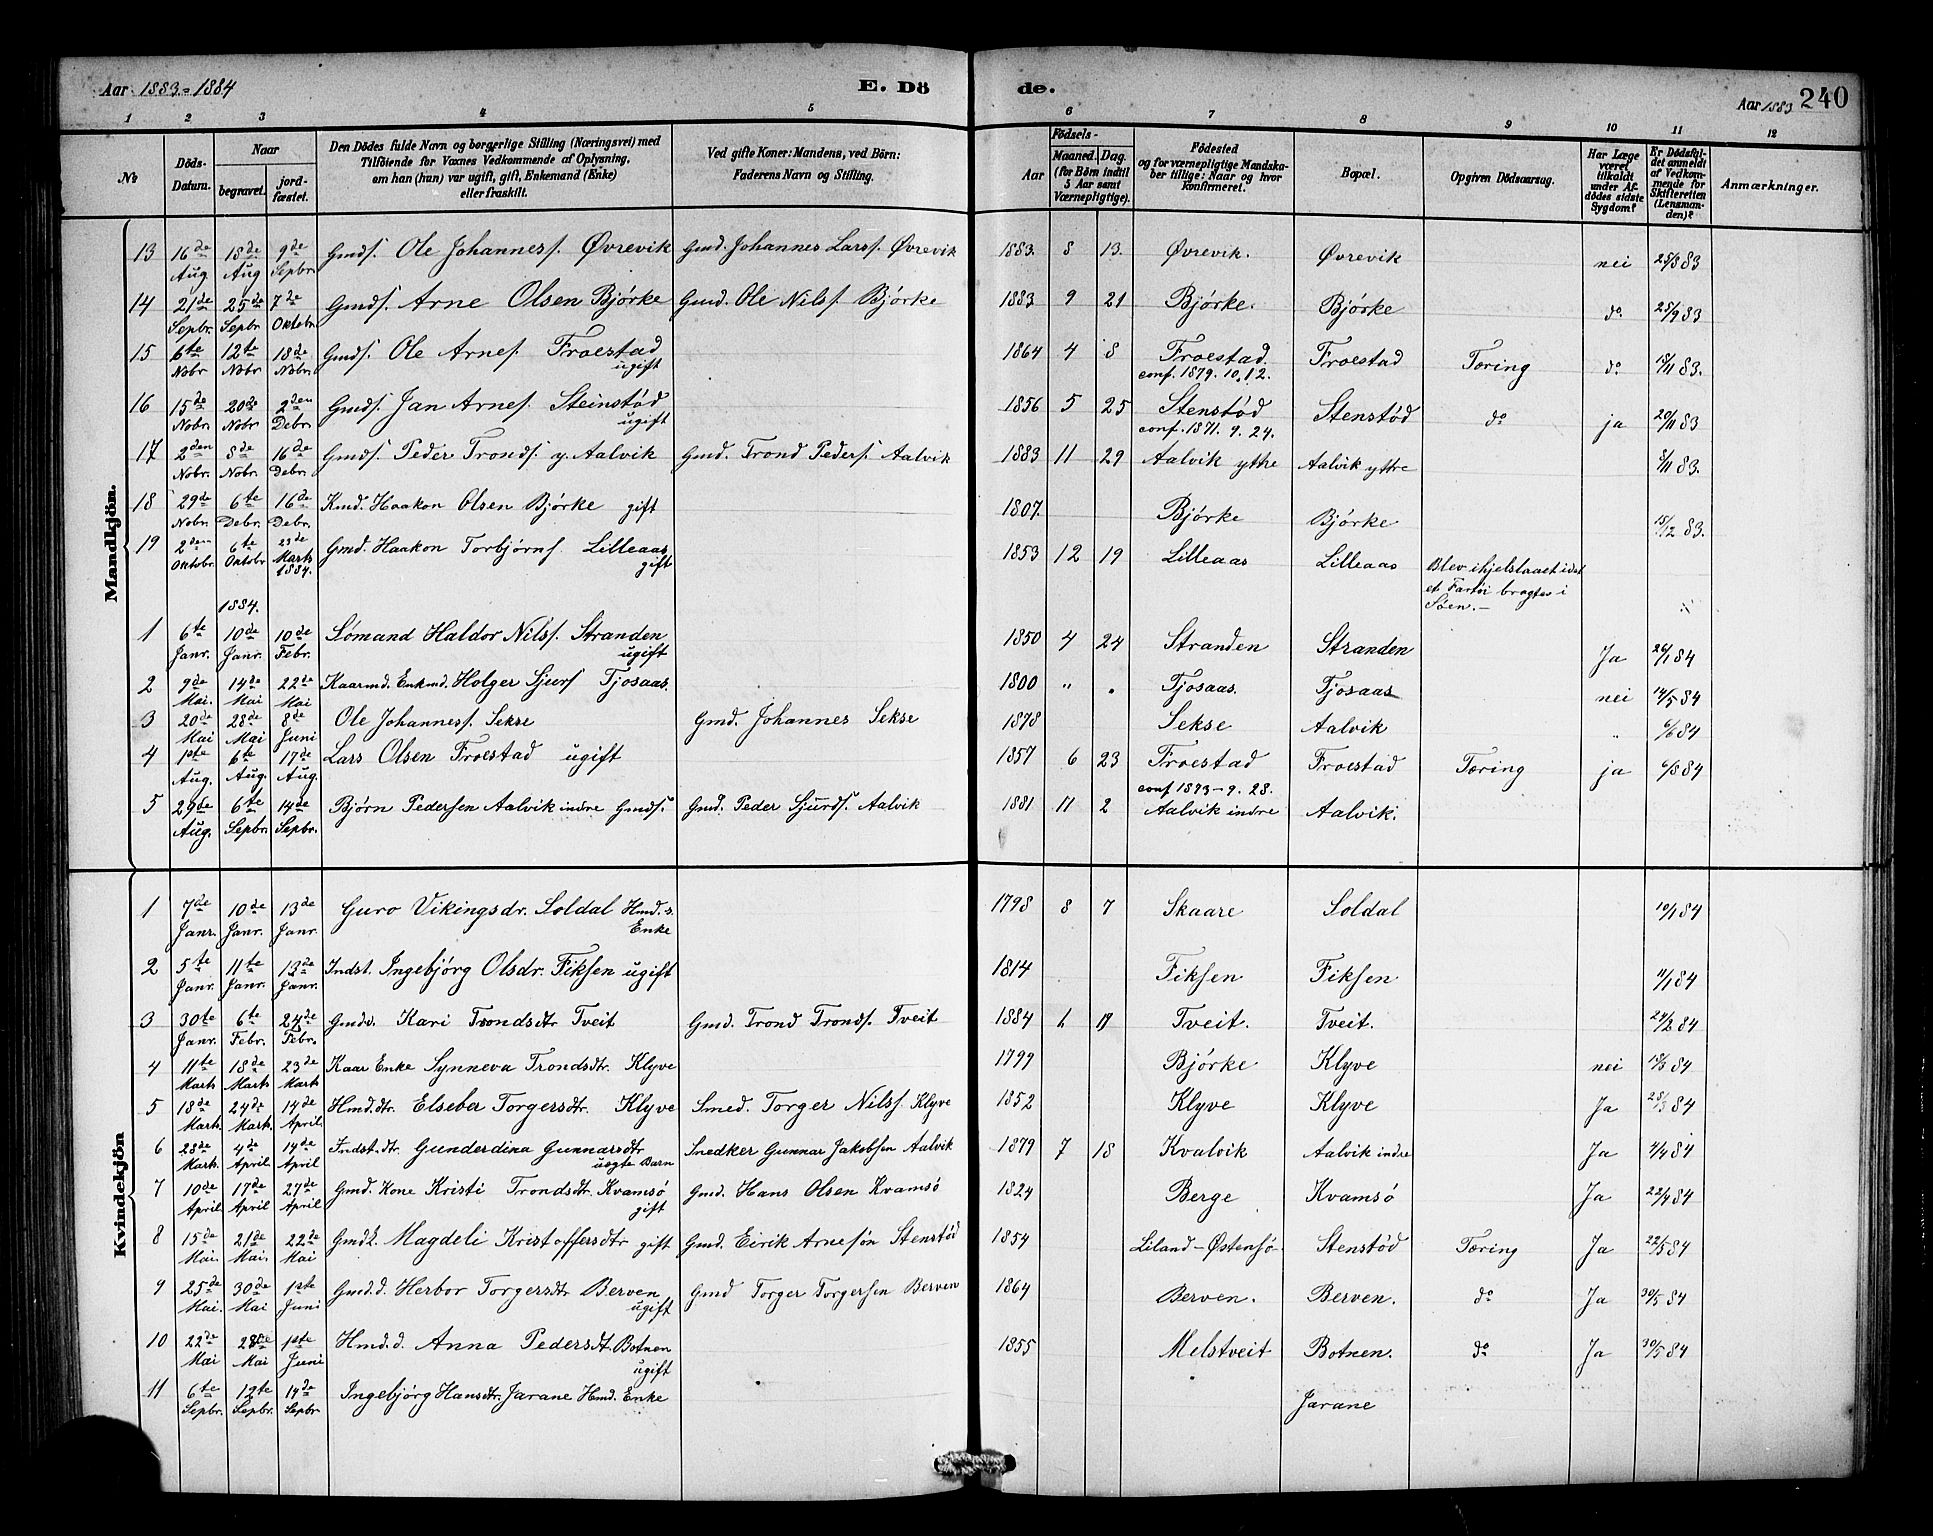 Aar 1883-1884
E. Dö
de.
Aar 1883
240
1 2 3 4 5 6 7 8 9 10 11 12
No
Döds-Datum.
Naar
begravet.
jord-fæstet.
Den Dödes fulde Navn og borgerlige Stilling (Næringsvei) med
Tilföiende for Voxnes Vedkommende af Oplysning,
om han (hun) var ugift, gift, Enkemand (Enke)
eller fraskilt.
Ved gifte Koner: Mandens, ved Börn:
Faderens Navn og Stilling.
Födsels-
Aar
Maaned. Dag.
(for Börn indtil
5 Aar samt
Værnepligtige).
Födested
og for værnepligtige Mandska-
ber tillige: Naar og hvor
konfirmeret.
Bopæl.
Opgiven Dödsaarsag.
Har Læge
været
tilkaldt
under Af-
dödes sidste
Sygdom?
Er Dödsfal-
det anmeldt
af Vedkom-
mende for
Skifteretten
(Lensman-
den)?
Anmærkninger.
Mandkjön.
13 16de Aug. 18de Aug 9de Sepbr. Gmds. Ole Johanness. Øvrevik Gmd. Johannes Larss. Øvrevik 1883. 8 13. Øvrevik. Øvrevik nei 25/8 83
14 21de Sepbr. 25de Sepbr 7de Oktobr. Gmds. Arne Olsen Bjørke Gmd. Ole Nilss. Bjørke 1883 9 21 Bjørke. Bjørke do. 25/9 83
15 6te Nobr 12te Nobr 18de Nobr. Gmds. Ole Arnes. Froestad ugift 1864 4 8 Froestad. conf. 1879. 10.12. Froestad Tæring do 18/11 83.
16 15de Nobr. 20de Nobr 2den Debr. Gmds. Jan Arnes. Steinstød ugift 1856 5 25 Stenstød conf. 1871. 9. 24. Stenstød do ja 20/11 83
17 2den Nobr. 8de Nobr. 16de Debr. Gmds. Peder Tronds. y. Aalvik Gmd. Trond Peders. Aalvik 1883 11 29 Aalvik ytre Aalvik ytre 8/11 83.
18 29de Nobr. 6te Debr. 16de Debr. Kmd. Haakon Olsen Bjørke gift 1807. Bjørke Bjørke 15/12 83.
19 2den Oktobr. 6te Oktobr 23de Marts 1884. Gmd. Haakon Torbjørns. Lilleaas gift 1853 12 19 Lilleaas Lilleaas Blev ihjelslaaet idet et Fartøi bragtes i Søen.-
1884.
1 6te Janr. 10de Janr. 10de Febr. Sømand Haldor Nilss. Stranden ugift 1850 4 24 Stranden Stranden Ja 26/1 84
2 9de Mai. 14de Mai 22de Mai Kaarmd. Enkmd. Holger Sjurs Tjosaas. 1800 " . Tjosaas. Tjosaas nei 14/5 84
3 20de Mai 28de Mai 8de Juni Ole Johanness. Sekse Gmd. Johannes Sekse 1878 Sekse Aalvik " 6/6 84
4 1ste Aug. 6te Aug. 17de Aug. Lars Olsen Froestad ugift 1857 6 23 Froestad conf 1873-9. 28. Froestad Tæring ja 6/8 84
5 29de Aug. 6te Sepbr. 14de Sepbr. Bjørn Pedersen Aalvik indre Gmds. Gmd. Peder Sjurds. Aalvik 1881 11 2 Aalvik indre Aalvik.
Kvindekjön
1 7de Janr. 10de Janr. 13de Janr. Guro Vikingsdr. Soldal Hmd.s. Enke 1798 8 7 Skaare Soldal 10/1 84
2 5te Janr. 11te Janr. 13de Janr. Indst. Ingebjørg Olsdr. Fiksen ugift 1814 Fiksen Fiksen 11/1 84
3 30te Janr. 6te Febr. 24de Febr. Gmdd. Kari Trondsdtr Tveit Gmd. Trond Tronds. Tveit 1884 Tveit. Tveit. 24/2 84
4 11te Mark. 18de Mark. 23de Mark Kaar Enke Synneva Trondsdtr. Klyve 1799 Bjørke Klyve nei 18/3 84
5 18de Mark. 24de Mark. 14de April. Hmd.dtr. Elseber Torgersdtr. Klyve Smed. Torger Nilss. Klyve 1852 Klyve Klyve Ja 28/3 84
6 28de Mark. 4de April. 14de April Indst.dtr Gunderdina Gunnarsdtr uegte Barn Snedker Gunnar Jakobsen Aalvik 1879 7 18 Kvalvik Aalvik indre Ja 4/4 84
7 10de April 17de April 27de April Gmd. Kone Kristi Trondsdtr. Kvamsø gift Gmd. Hans Olsen Kvamsø 1824 Berge Kvamsø Ja 22/4 84
8 15de Mai. 21de Mai. 22de Mai Gmdk. Magdeli Kristoffersdtr gift Gmd. Eirik Arnesøn Stenstød 1854 Liland-Østensø- Stenstød Tæring Ja 22/5 84
9 25de Mai. 30de Mai 1ste Juni Gmd.d. Herbor Torgersdtr Berven ugift Gmd Torger Torgersen Berven 1864 Berven. Berven. do Ja 30/5 84
10 22de Mai 28de Mai 1ste Juni Hmd.d. Anna Pedersdt. Botnen ugift 1855 Melstveit Botnen. do Ja 30/5 84
11 6te Sepbr. 12te Sepbr. 14de Sepbr Ingebjørg Hansdtr. Jarane Hmd. Enke Jarane